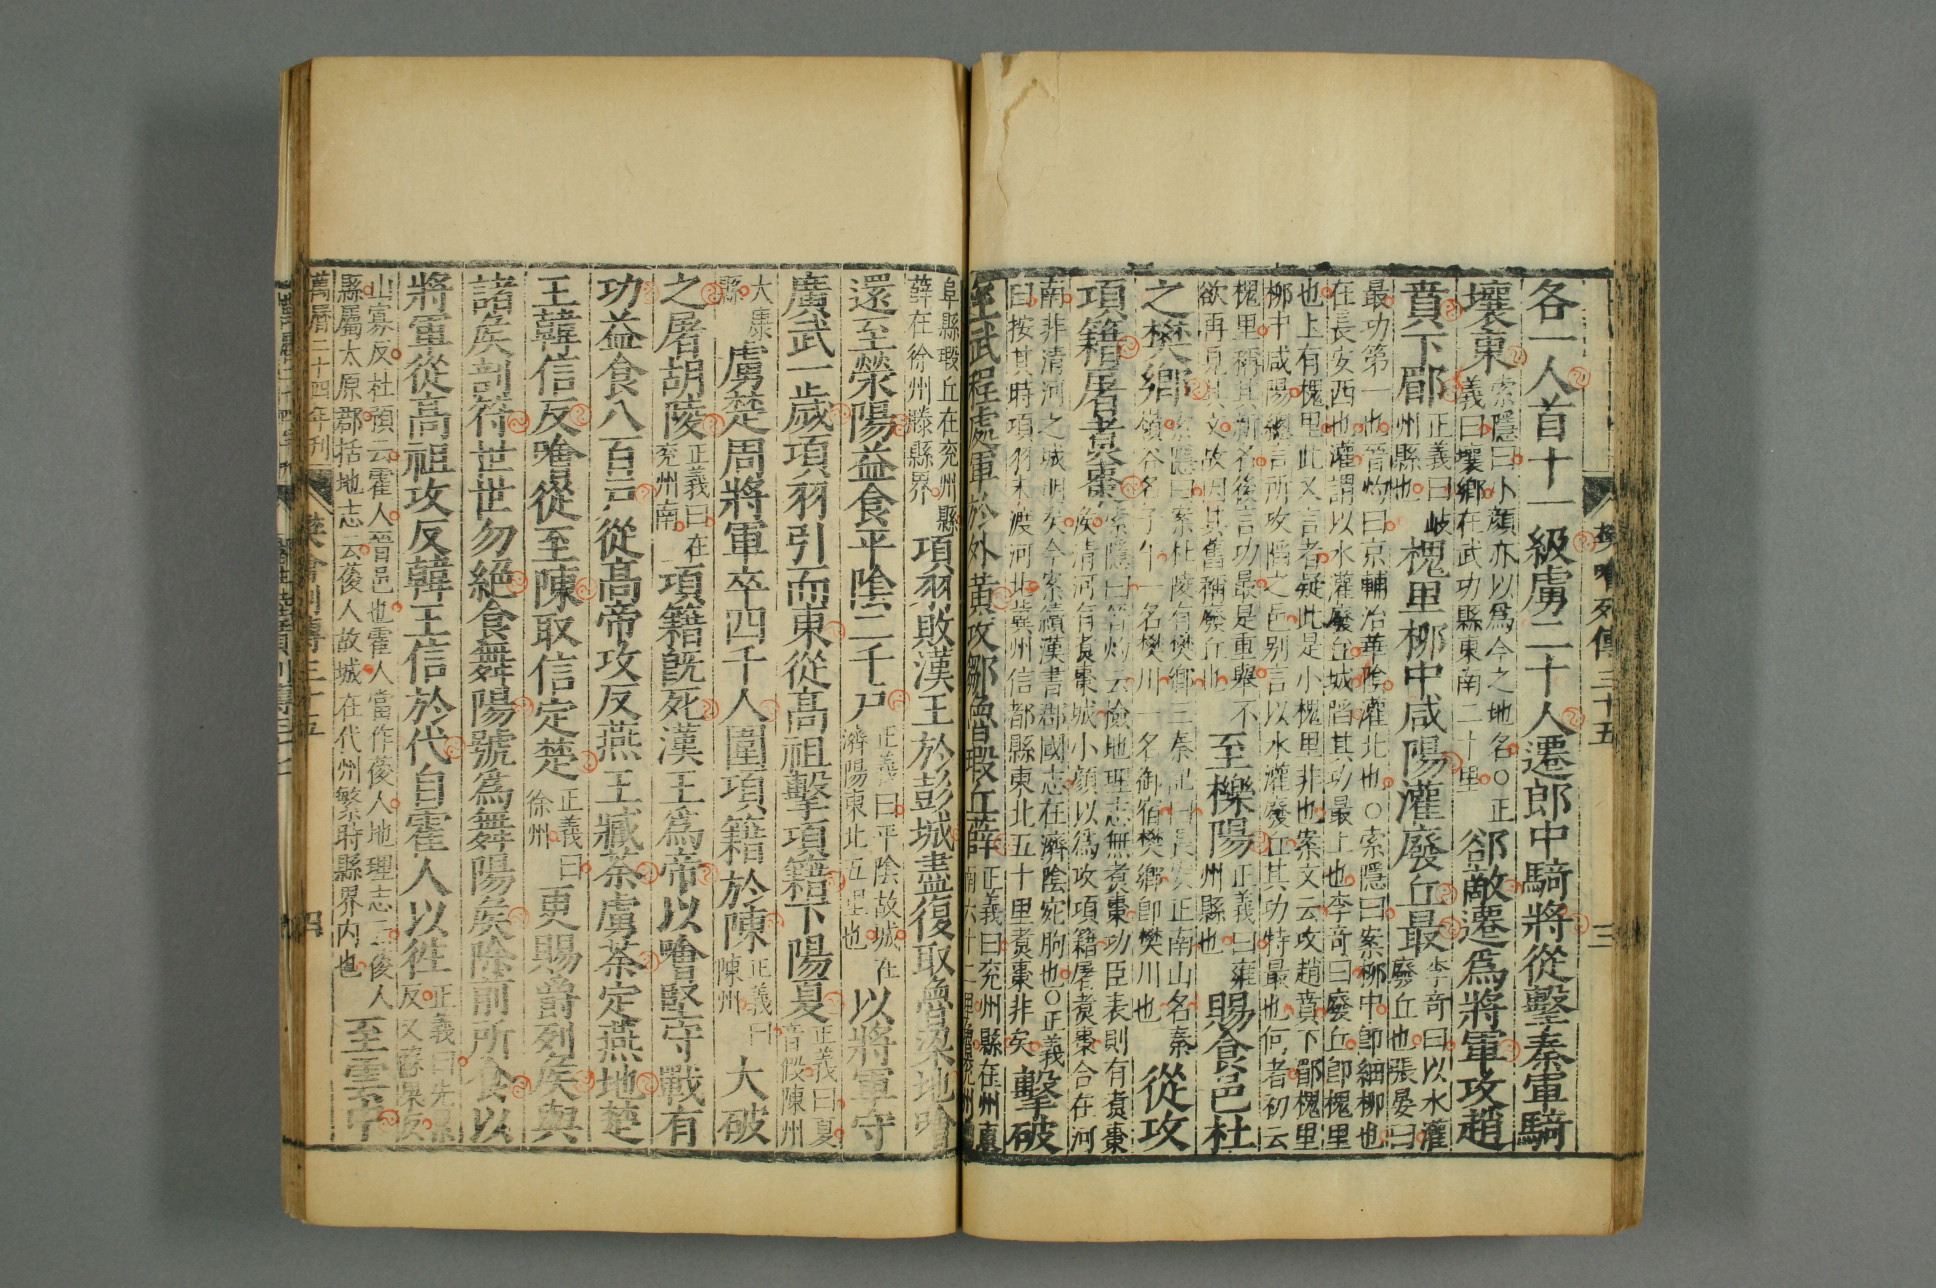 樊噲列傳三十五 三
各一人首十一級虜二十人遷郎中騎將從擊秦軍騎
壤東索隱曰小顏亦以為今之地名○正義曰壤鄉在武功縣東南二十里郤敵遷為將軍攻趙
賁下郿正義曰岐州縣也槐里柳中咸陽灌廢丘最李奇曰以水灌廢丘也張晏曰
最功第一也晉灼曰京輔治華陰灌北也○索隱曰案柳中即細柳也
在長安西也灌謂以水灌廢丘城陷其功最上也李奇曰廢丘即槐里
也上有槐里此又言者疑此是小槐里非也案文云攻趙賁下郿槐里
柳中咸陽總言所攻陷之邑別言以水灌廢丘其功特最也何者初云
槐里稱其新名後言功最是重舉不
欲再見其文故因其舊稱廢丘也至櫟陽正義曰雍州縣也賜食邑杜
之樊鄉索隱曰案杜陵有樊鄉三秦記曰長安正南山名秦嶺谷名子午一名樊川一名御宿樊鄉即樊川也從攻
項籍屠煑棗索隱曰晉灼云檢地理志無煑棗功臣表則有煑棗
侯清河有煑棗城小顏以為攻項籍屠煑棗合在河
南非清河之城明矣今案續漢書郡國志在濟陰宛朐也○正義
曰按其時項羽未渡河北冀州信都縣東北五十里煑棗非矣擊破
王武程處軍於外黃攻鄒魯瑕丘薛正義曰兖州縣在州東南六十二里魯兖州曲
阜縣瑕丘在兖州縣
薛在徐州滕縣界項羽敗漢王於彭城盡復取魯梁地噲
還至滎陽益食平陰二千戶正義曰平陰故城在濟陽東北五里也以將軍守
廣武一歲項羽引而東從高祖擊項籍下陽夏正義曰夏音假陳州
大康縣虜楚周將軍卒四千人圍項籍於陳正義曰陳州大破
之屠胡陵正義曰在兖州南項籍既死漢王為帝以噲堅守戰有
功益食八百戶從高帝攻反燕王臧荼虜荼定燕地楚
王韓信反噲從至陳取信定楚正義曰徐州更賜爵列侯與
諸侯剖符世世勿絕食舞陽號為舞陽侯除前所食以
將軍從高祖攻反韓王信於代自霍人以往正義曰先累反又蘇果反
山寡反杜預云霍人晉邑也霍人當作葰人地理志云葰人
縣屬太原郡括地志云葰人故城在代州繁畤縣界內也至雲中
萬曆二十四年刊 樊噲列傳三十五 四